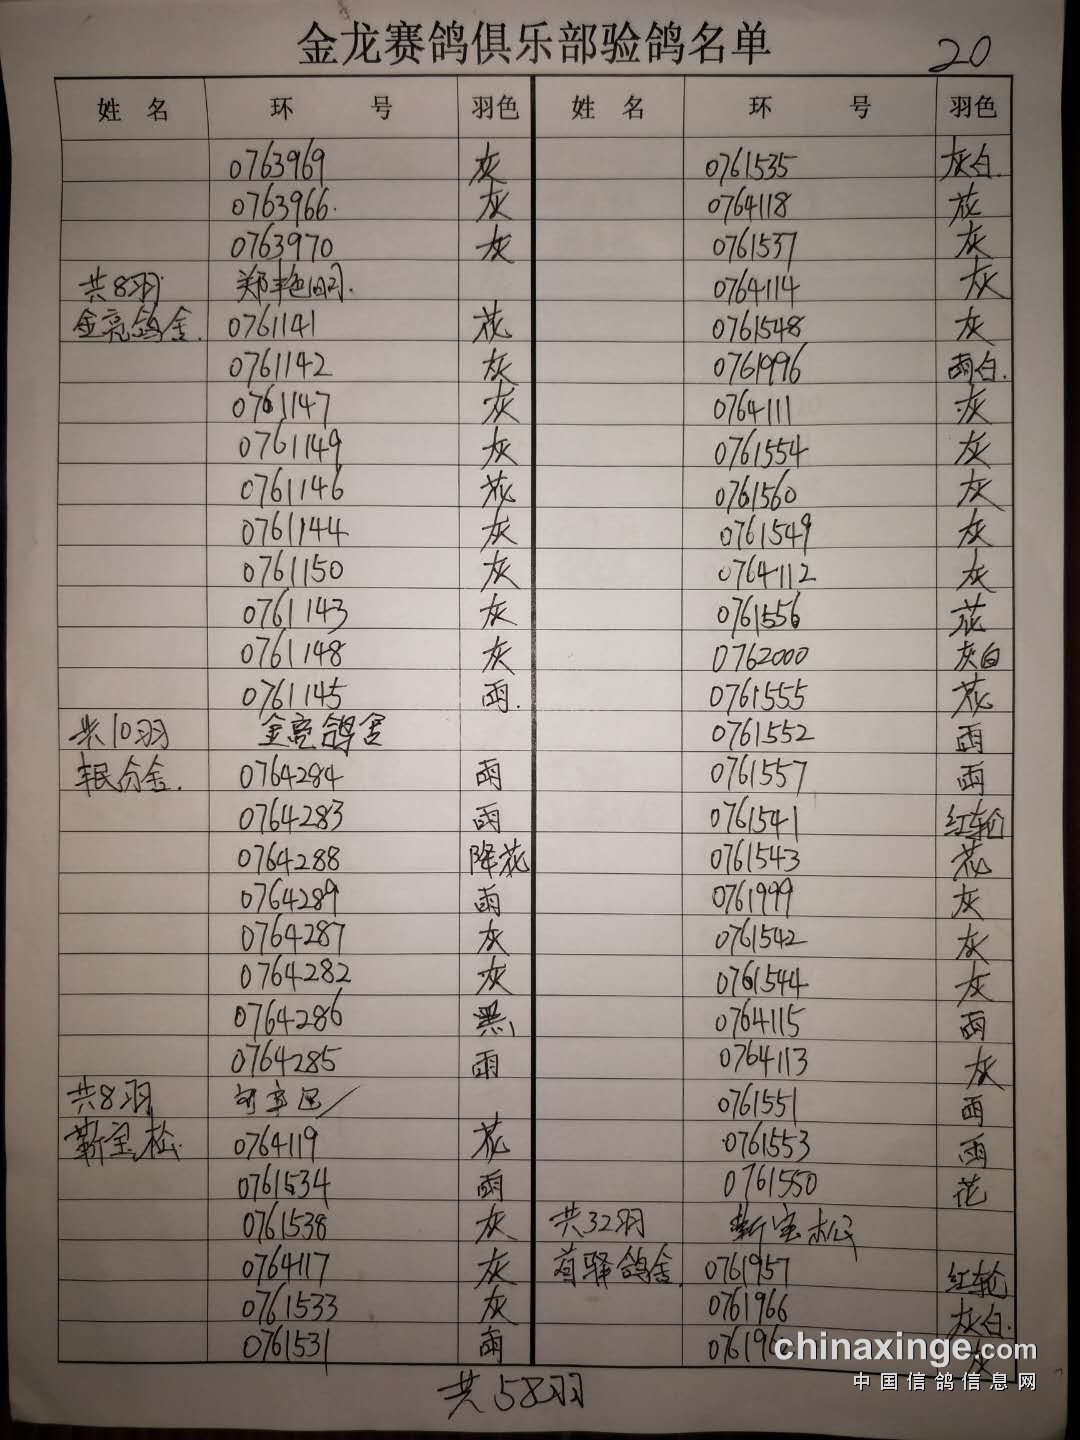 金龙赛鸽俱乐部验鸽名单
20
姓 名 环 号 羽色
0763969 灰
0763966 灰
0763970 灰
共8羽 郑丰色
金亮鸽舍 0761141 花
0761142 灰
0761147 灰
0761149 灰
0761146 花
0761144 灰
0761150 灰
0761143 灰
0761148 灰
0761145 雨
共10羽 金亮鸽舍
0764284 雨
0764283 雨
0764288 降花
0764289 雨
0764287 灰
0764282 灰
0764286 黑
0764285 雨
共8羽
靳宝松 0764119 花
0761534 雨
0761538 灰
0764117 灰
0761533 灰
0761531 雨
姓 名 环 号 羽色
0761535 灰白
0764118 花
0761537 灰
0764114 灰
0761548 灰
0761996 雨白
0764111 灰
0761554 灰
0761560 灰
0761549 灰
0764112 灰
0761556 花
0762000 灰白
0761555 花
0761552 雨
0761557 雨
0761541 红轮
0761543 花
0761999 灰
0761542 灰
0761544 灰
0764115 雨
0764113 灰
0761551 雨
0761553 雨
0761550 花
共32羽 靳宝松
驿鸽舍 0761957 红轮
0761966 灰白
07619 灰
共58羽
chinaxinge.com
中国信鸽信息网